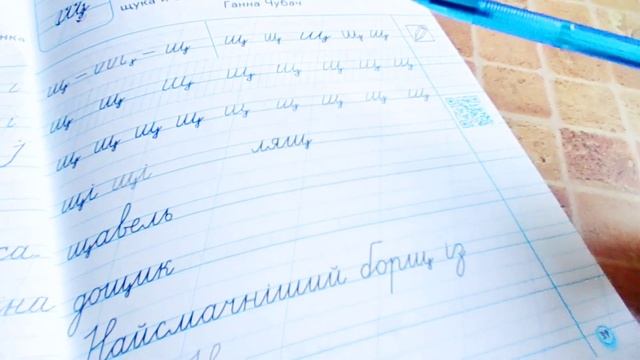 щ
щука
Ганна Чубач
щ щ щ щ щ щ
щ щ щ щ щ щ щ щ щ
щ щ щ щ щ щ щ щ щ
щі щі лящ
щавель
дощик
Найсмачніший борщ із
39